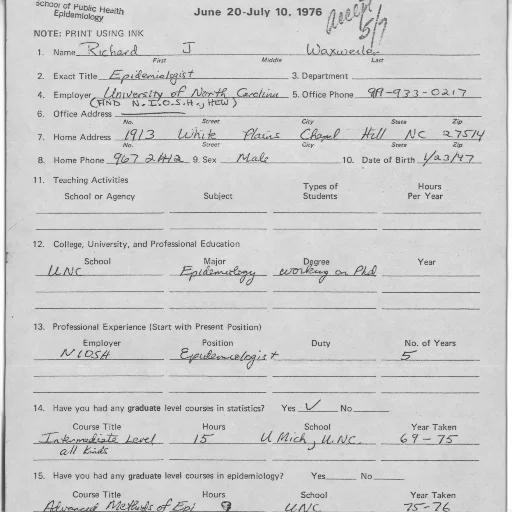 School of Public Health
Epidemiology
June 20-July 10, 1976
accept
5/7
NOTE: PRINT USING INK
1. Name Richard J Waxweiler
First Middle Last
2. Exact Title Epidemiologist 3. Department
4. Employer University of North Carolina 5. Office Phone 919-933-0217
(AND N.I.O.S.H., HEW)
6. Office Address
No. Street City State Zip
7. Home Address 1913 White Plains Chapel Hill NC 27514
No. Street City State Zip
8. Home Phone 967 2412 9. Sex Male 10. Date of Birth 1/23/47
11. Teaching Activities
School or Agency Subject Types of Students Hours Per Year
12. College, University, and Professional Education
School Major Degree Year
UNC Epidemiology working on Phd
13. Professional Experience (Start with Present Position)
Employer Position Duty No. of Years
NIOSH Epidemiologist 5
14. Have you had any graduate level courses in statistics? Yes ✓ No
Course Title Hours School Year Taken
Intermediate Level 15 U Mich, UNC. 69-75
all kinds
15. Have you had any graduate level courses in epidemiology? Yes No
Course Title Hours School Year Taken
Advanced Methods of Epi 9 UNC 75-76